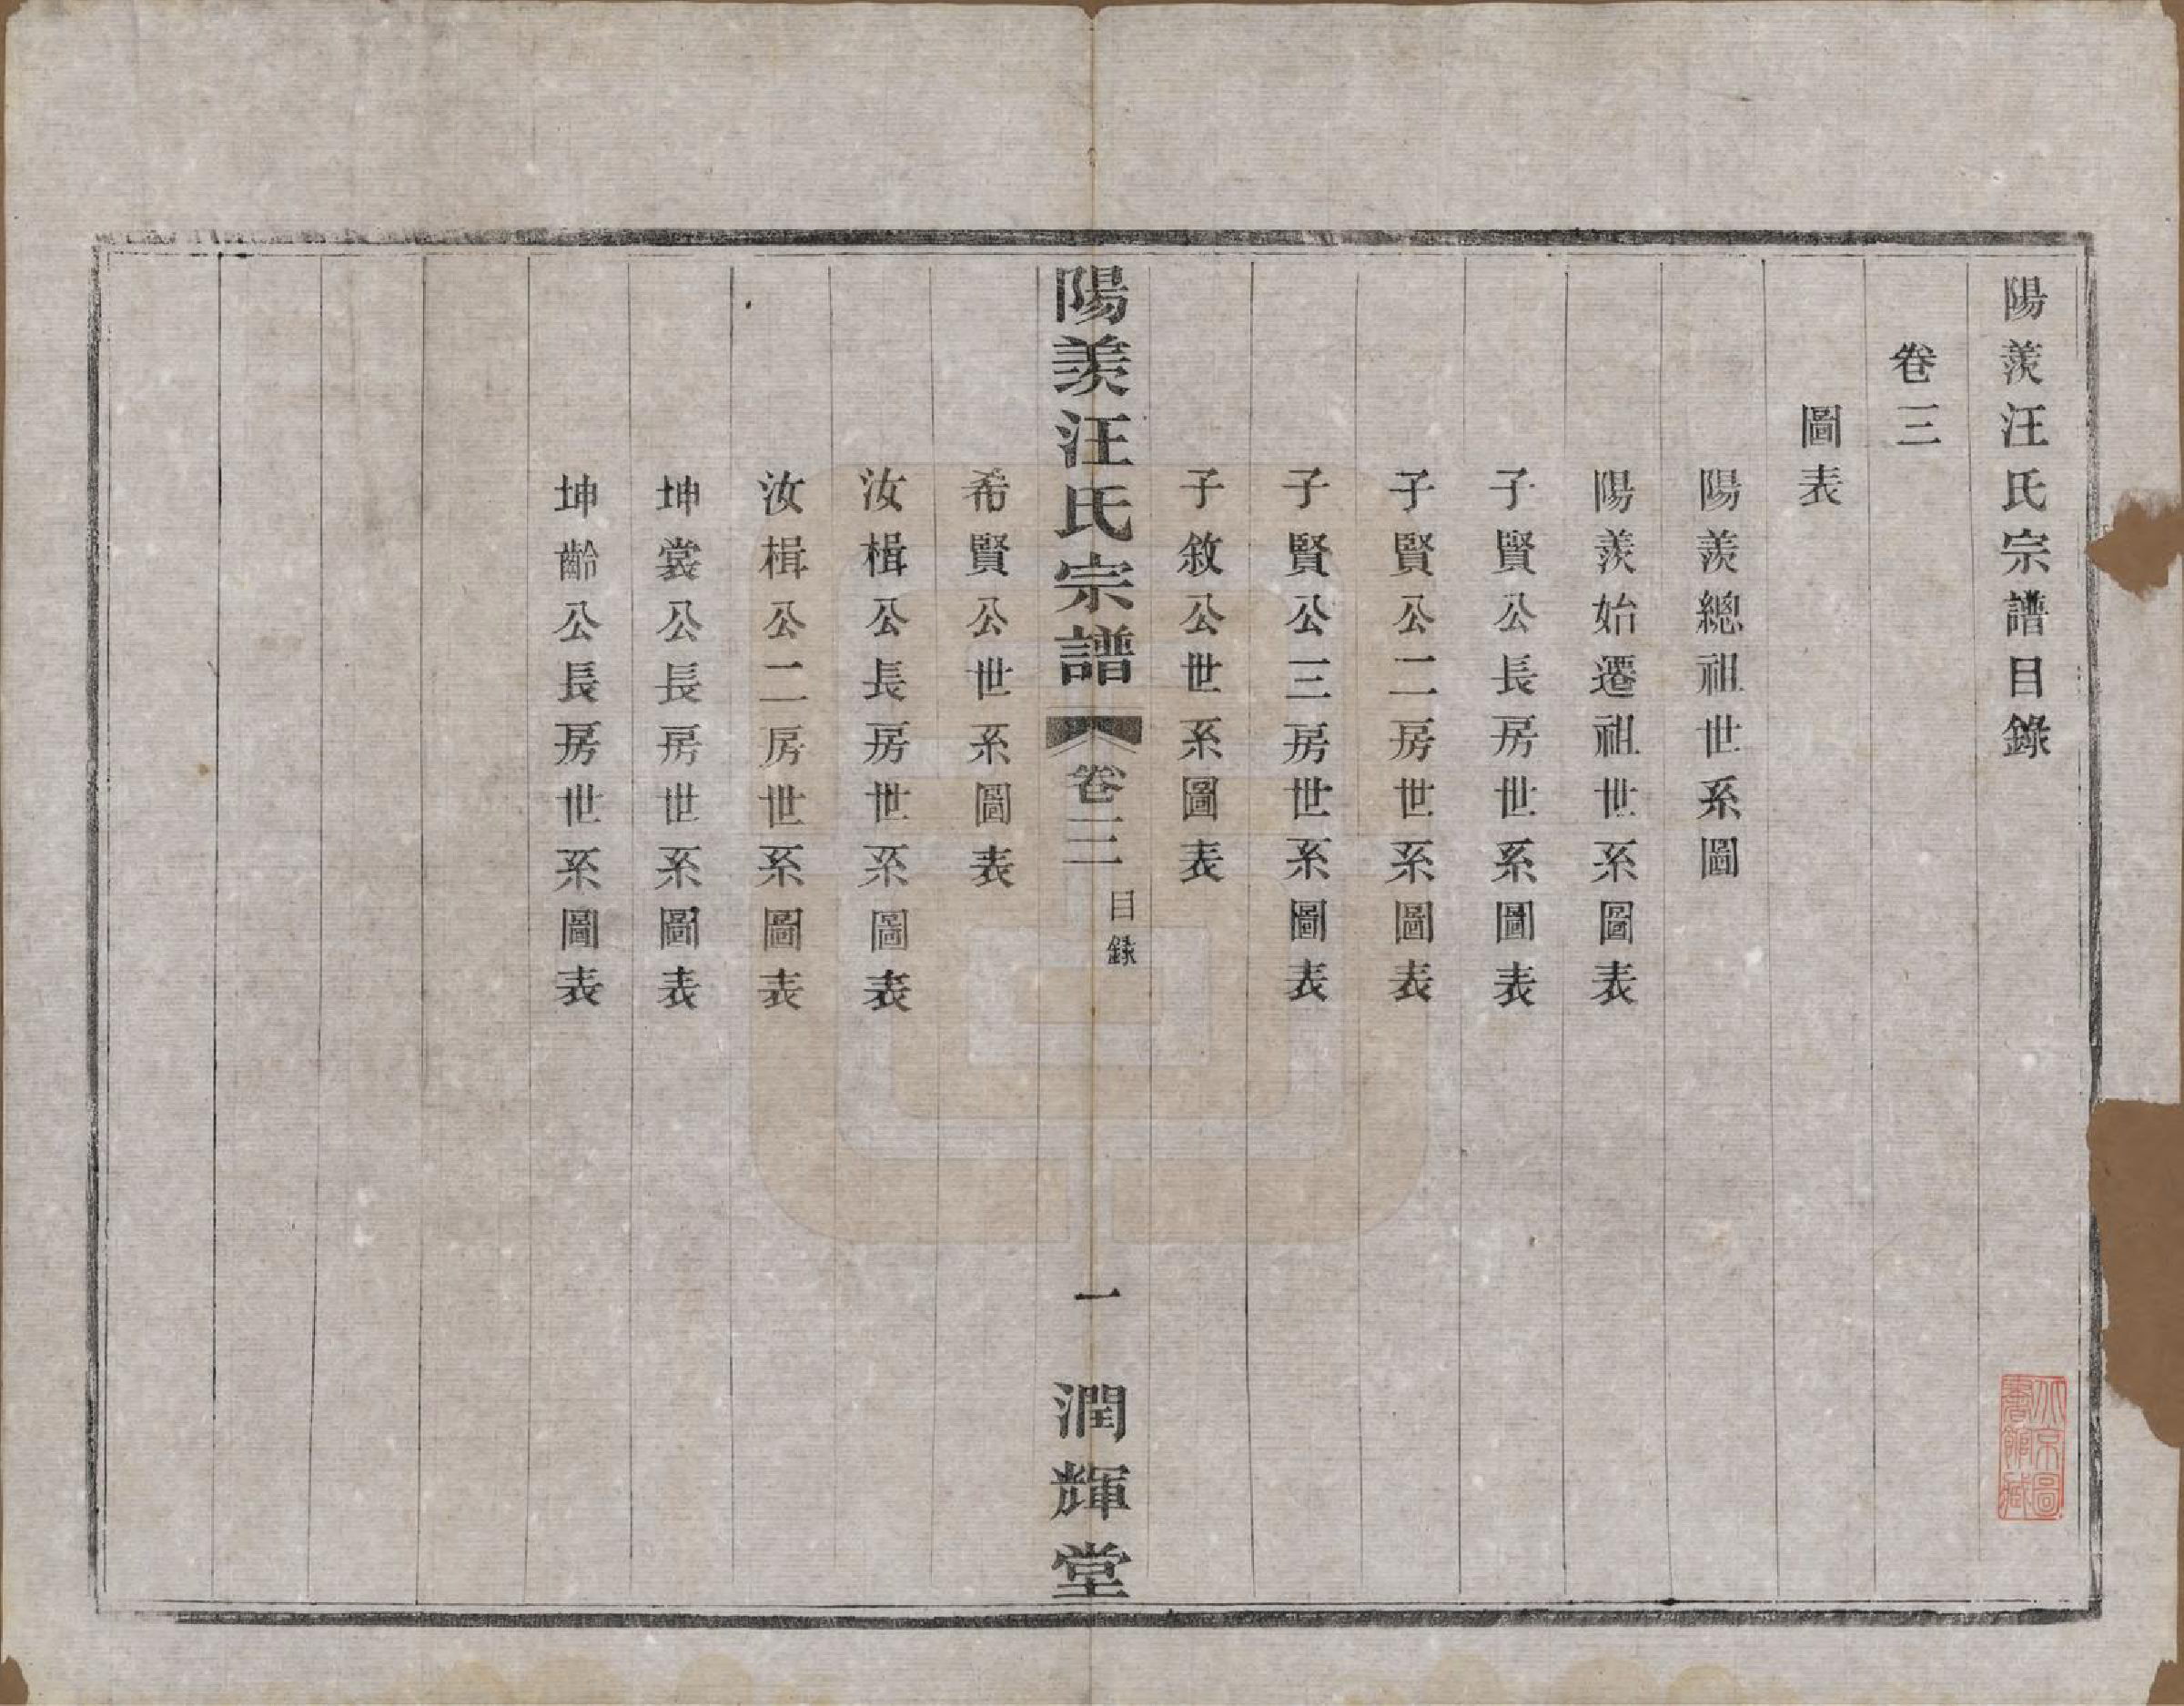 陽羨汪氏宗譜目錄
卷三
圖表
陽羨總祖世系圖
陽羨始遷祖世系圖表
子賢公長房世系圖表
子賢公二房世系圖表
子賢公三房世系圖表
子敘公世系圖表
陽羨汪氏宗譜
卷三
目錄
一
潤輝堂
希賢公世系圖表
汝楫公長房世系圖表
汝楫公二房世系圖表
坤裳公長房世系圖表
坤齡公長房世系圖表
北京圖書館藏